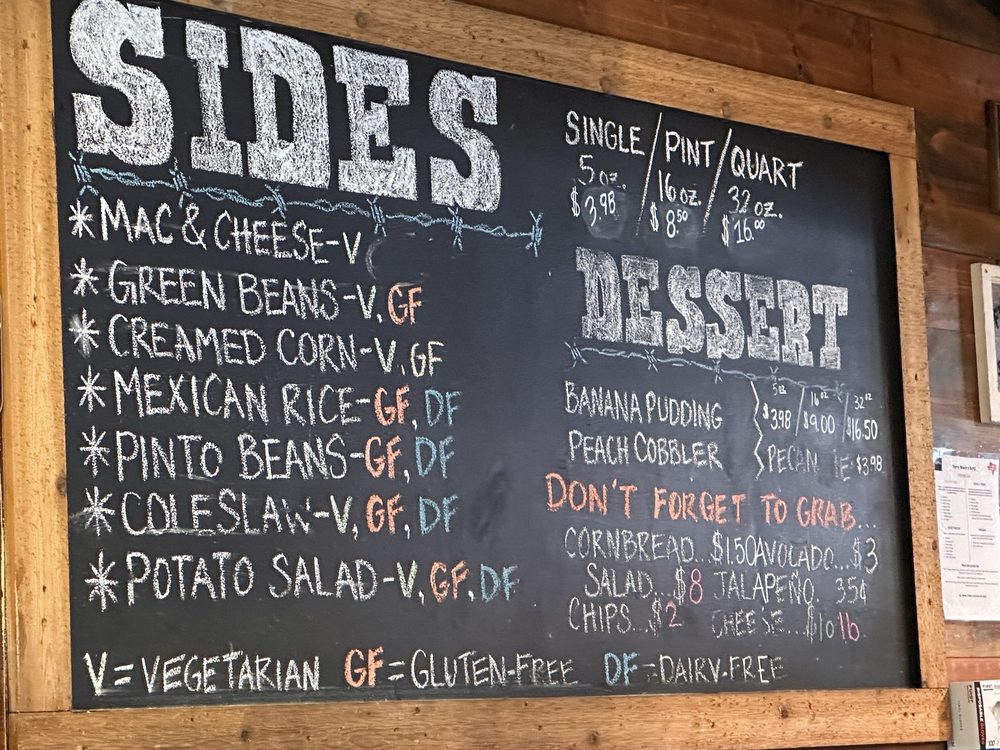 SIDES
* MAC & CHEESE-V
* GREEN BEANS-V, GF
* CREAMED CORN-V, GF
* MEXICAN RICE-GF, DF
* PINTO BEANS-GF, DF
* COLESLAW-V, GF, DF
* POTATO SALAD-V, GF, DF
V=VEGETARIAN GF=GLUTEN-FREE DF=DAIRY-FREE
SINGLE / PINT / QUART
5 oz. / 16 oz. / 32 oz.
$3.98 / $8.50 / $16.00
DESSERT
5oz 16oz 32oz
BANANA PUDDING $3.98 / $9.00 / $16.50
PEACH COBBLER PECAN IE: $3.98
DON'T FORGET TO GRAB...
CORNBREAD...$1.50 AVOLADO...$3
SALAD...$8 JALAPEÑO. 35¢
CHIPS...$2 CHEESE...$10 lb